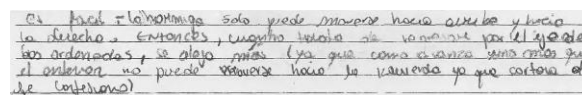 Es fácil = la hormiga solo puede moverse hacia arriba y hacia
la derecha. Entonces, cuanto de por el eje de
las ordenadas, se aleja más (ya que como avanza uno más que
el anterior no puede moverse hacia la izquierda ya que cortaro el
se